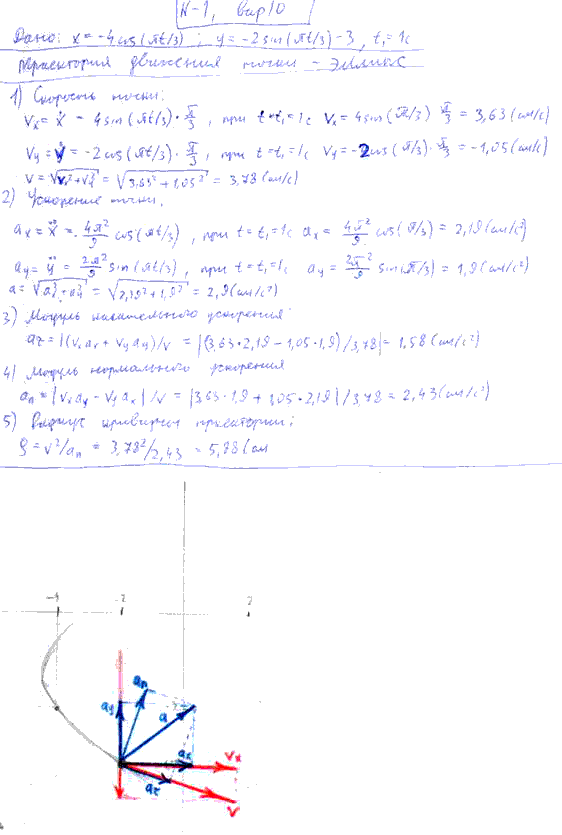 К-1, вар 10
Дано: x = -4cos(πt/3); y = -2sin(πt/3) - 3, t₁ = 1c
Траектория движения точки - эллипс
1) Скорость точки:
Vx = ẋ = 4sin(πt/3)·π/3, при t = t₁ = 1c Vx = 4sin(π/3) π/3 = 3,63 (см/с)
Vy = ẏ = -2cos(πt/3)·π/3, при t = t₁ = 1c Vy = -2cos(π/3)·π/3 = -1,05 (см/с)
V = √(Vx²+Vy²) = √(3,63²+1,05²) = 3,78 (см/с)
2) Ускорение точки.
ax = ẍ = 4π²/9 cos(πt/3), при t = t₁ = 1c ax = 4π²/9 cos(π/3) = 2,19 (см/с²)
ay = ÿ = 2π²/9 sin(πt/3), при t = t₁ = 1c ay = 2π²/9 sin(π/3) = 1,9 (см/с²)
a = √(ax²+ay²) = √(2,19²+1,9²) = 2,9 (см/с²)
3) Модуль касательного ускорения:
aτ = |(Vx ax + Vy ay)/V = |(3,63·2,19 - 1,05·1,9)/3,78| = 1,58 (см/с²)
4) Модуль нормального ускорения
an = |Vx ay - Vy ax|/V = |3,63·1,9 + 1,05·2,19|/3,78 = 2,43 (см/с²)
5) Радиус кривизны траектории:
ρ = V²/an = 3,78²/2,43 = 5,88 (см
-4 -2 2
an
ay a
ax Vx
aτ V